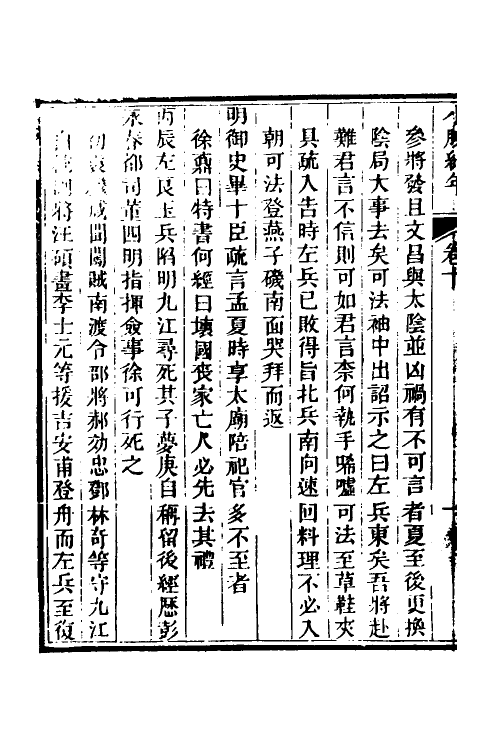 小腆紀年
卷十
參將發且文昌與太陰並凶禍有不可言者夏至後更換
陰局大事去矣可法袖中出詔示之曰左兵東矣吾將赴
難君言不信則可如君言柰何執手唏噓可法至草鞋夾
具疏入告時左兵已敗得旨北兵南向速回料理不必入
朝可法登燕子磯南面哭拜而返
明御史畢十臣疏言孟夏時享太廟陪祀官多不至者
徐鼒曰特書何經曰壞國喪家亡人必先去其禮
丙辰左良玉兵陷明九江尋死其子夢庚自稱留後經歷彭
永春都司董四明指揮僉事徐可行死之
初袁 咸聞闖賊南渡令部將郝効忠鄧林奇等守九江
自 副將汪碩畫李士元等援吉安甫登舟而左兵至復